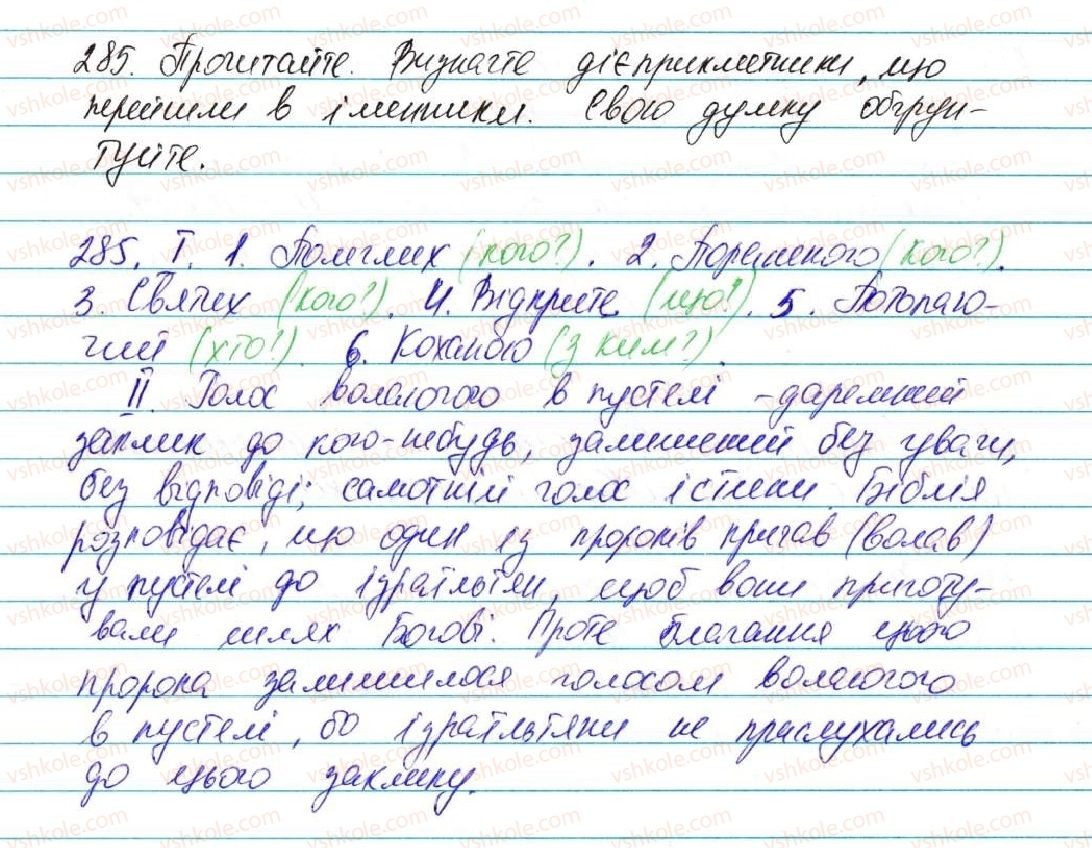 285. Прочитайте. Визначте дієприкметники, що
перейшли в іменники. Свою думку обґрун-
туйте.
285. I. 1. Полеглих (кого?). 2. Пораненого (кого?).
3. Святих (кого?). 4. Відкрите (що?). 5. Потопаю-
чий (хто?). 6. Коханою (з ким?).
II. Голос волаючого в пустелі - даремний
заклик до кого-небудь, залишений без уваги,
без відповіді; самотній голос істини. Біблія
розповідає, що один із пророків кричав (волав)
у пустелі до ізраїльтян, щоб вони приготу-
вали шлях Богові. Проте благання цього
пророка залишилося голосом волаючого
в пустелі, бо ізраїльтяни не прислухались
до цього заклику.